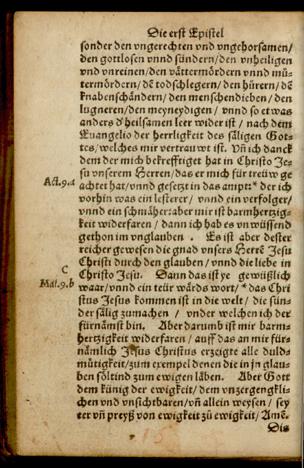 Die erst Epistel
sonder den vngerechten vnd vngehorsamen/
den gottlosen vnnd sündern/den vnheiligen
vnd vnreinen/den vättermördern vnnd mü-
termördern/dē todschlegern/den hürern/dē
knabenschändern/den menschendieben/den
lugneren/den meyneydigen/ vnnd so et was
anders d'heilsamen leer wider ist / nach dem
Euangelio der herrligkeit des säligen Got-
tes/welches mir vertrauwt ist. Vñ ich danck
dem der mich bekrefftiget hat in Christo Je-
su vnserem Herren/das er mich für treüw ge
Act.9.a
achtet hat/vnnd gesetzt in das ampt:* der ich
vorhin was ein lesterer/ vnnd ein verfolger/
vnnd ein schmäher: aber mir ist barmhertzig-
keit widerfaren / dann ich hab es vnwüssend
gethon im vnglauben . Es ist aber dester
reicher gewesen die gnad vnsers Herrē Jesu
Christi durch den glauben/ vnnd die liebe in
C
Christo Jesu. Dann das ist ye gewüßlich
Mat.9.b
waar/vnnd ein teür wärds wort/ *das Chri
stus Jesus kommen ist in die welt/ die sün-
der sälig zumachen / vnder welchen ich der
fürnämst bin. Aber darumb ist mir barm-
hertzigkeit widerfaren/ auff das an mir für-
nämlich Jesus Christus erzeigte alle duld-
mütigkeit/zum exempel denen die in jn glau-
ben söltind zum ewigen läben. Aber Gott
dem künig der ewigkeit/ dem vnzergengkli-
chen vnd vnsichtbaren/vñ allein weysen/ sey
eer vñ preyß von ewigkeit zů ewigkeit/ Amē.
Dis